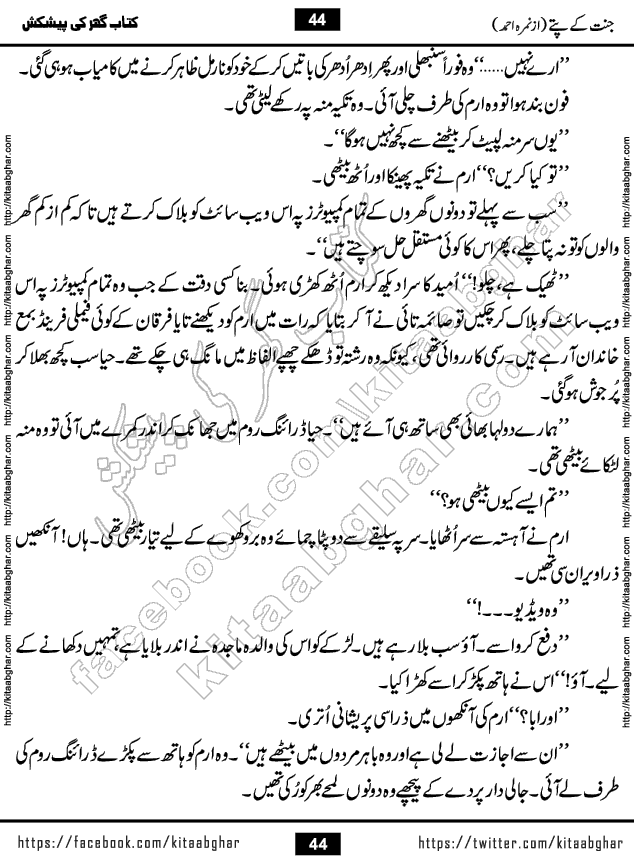 جنت کے پتے (از نمرہ احمد)
44
کتاب گھر کی پیشکش
’’ارے نہیں......‘‘ وہ فوراً سنبھلی اور پھر ادھر اُدھر کی باتیں کر کے خود کو نارمل ظاہر کرنے میں کامیاب ہو ہی گئی۔
فون بند ہوا تو وہ ارم کی طرف چلی آئی۔ وہ تکیہ منہ پہ رکھے لیٹی تھی۔
’’یوں سر منہ لپیٹ کر بیٹھنے سے کچھ نہیں ہوگا‘‘۔
’’تو کیا کریں؟‘‘ ارم نے تکیہ پھینکا اور اُٹھ بیٹھی۔
’’سب سے پہلے تو دونوں گھروں کے تمام کمپیوٹرز پہ اس ویب سائٹ کو بلاک کرتے ہیں تاکہ کم از کم گھر
والوں کو تو نہ پتا چلے، پھر اس کا کوئی مستقل حل سوچتے ہیں‘‘۔
’’ٹھیک ہے، چلو!‘‘ اُمید کا سرا دیکھ کر ارم اُٹھ کھڑی ہوئی۔ بنا کسی دقت کے جب وہ تمام کمپیوٹرز پہ اس
ویب سائٹ کو بلاک کر چکیں تو صائمہ تائی نے آ کر بتایا کہ رات میں ارم کو دیکھنے تایا فرقان کے کوئی فیملی فرینڈ بمع
خاندان آ رہے ہیں۔ رسمی کارروائی تھی، کیونکہ وہ رشتہ تو ڈھکے چھپے الفاظ میں مانگ ہی چکے تھے۔ حیا سب کچھ بھلا کر
پر جوش ہو گئی۔
’’ہمارے دولہا بھائی بھی ساتھ ہی آئے ہیں‘‘۔ حیا ڈرائنگ روم میں جھانک کر اندر کمرے میں آئی تو وہ منہ
لٹکائے بیٹھی تھی۔
’’تم ایسے کیوں بیٹھی ہو؟‘‘
ارم نے آہستہ سے سر اُٹھایا۔ سر پہ سلیقے سے دوپٹا جمائے وہ بروکھوے کے لیے تیار بیٹھی تھی۔ ہاں! آنکھیں
ذرا ویران سی تھیں۔
’’وہ ویڈیو۔۔۔!‘‘
’’دفع کرو اسے۔ آؤ سب بلا رہے ہیں۔ لڑکے کو اس کی والدہ ماجدہ نے اندر بلایا ہے، تمہیں دکھانے کے
لیے۔ آؤ!‘‘ اس نے ہاتھ پکڑ کر اسے کھڑا کیا۔
’’اور ابا؟‘‘ ارم کی آنکھوں میں ذرا سی پریشانی اُتری۔
’’ان سے اجازت لے لی ہے اور وہ باہر مردوں میں بیٹھے ہیں‘‘۔ وہ ارم کو ہاتھ سے پکڑے ڈرائنگ روم کی
طرف لے آئی۔ جالی دار پردے کے پیچھے وہ دونوں لمحے بھر کو رُکی تھیں۔
کتاب گھر کی پیشکش
facebook.com/kitaabghar
kitaabghar.com
http://kitaabghar.com http://kitaabghar.com http://kitaabghar.com http://kitaabghar.com http://kitaabghar.com http://kitaabghar.com
http://kitaabghar.com http://kitaabghar.com http://kitaabghar.com http://kitaabghar.com http://kitaabghar.com http://kitaabghar.com
https://facebook.com/kitaabghar
44
https://twitter.com/kitaabghar